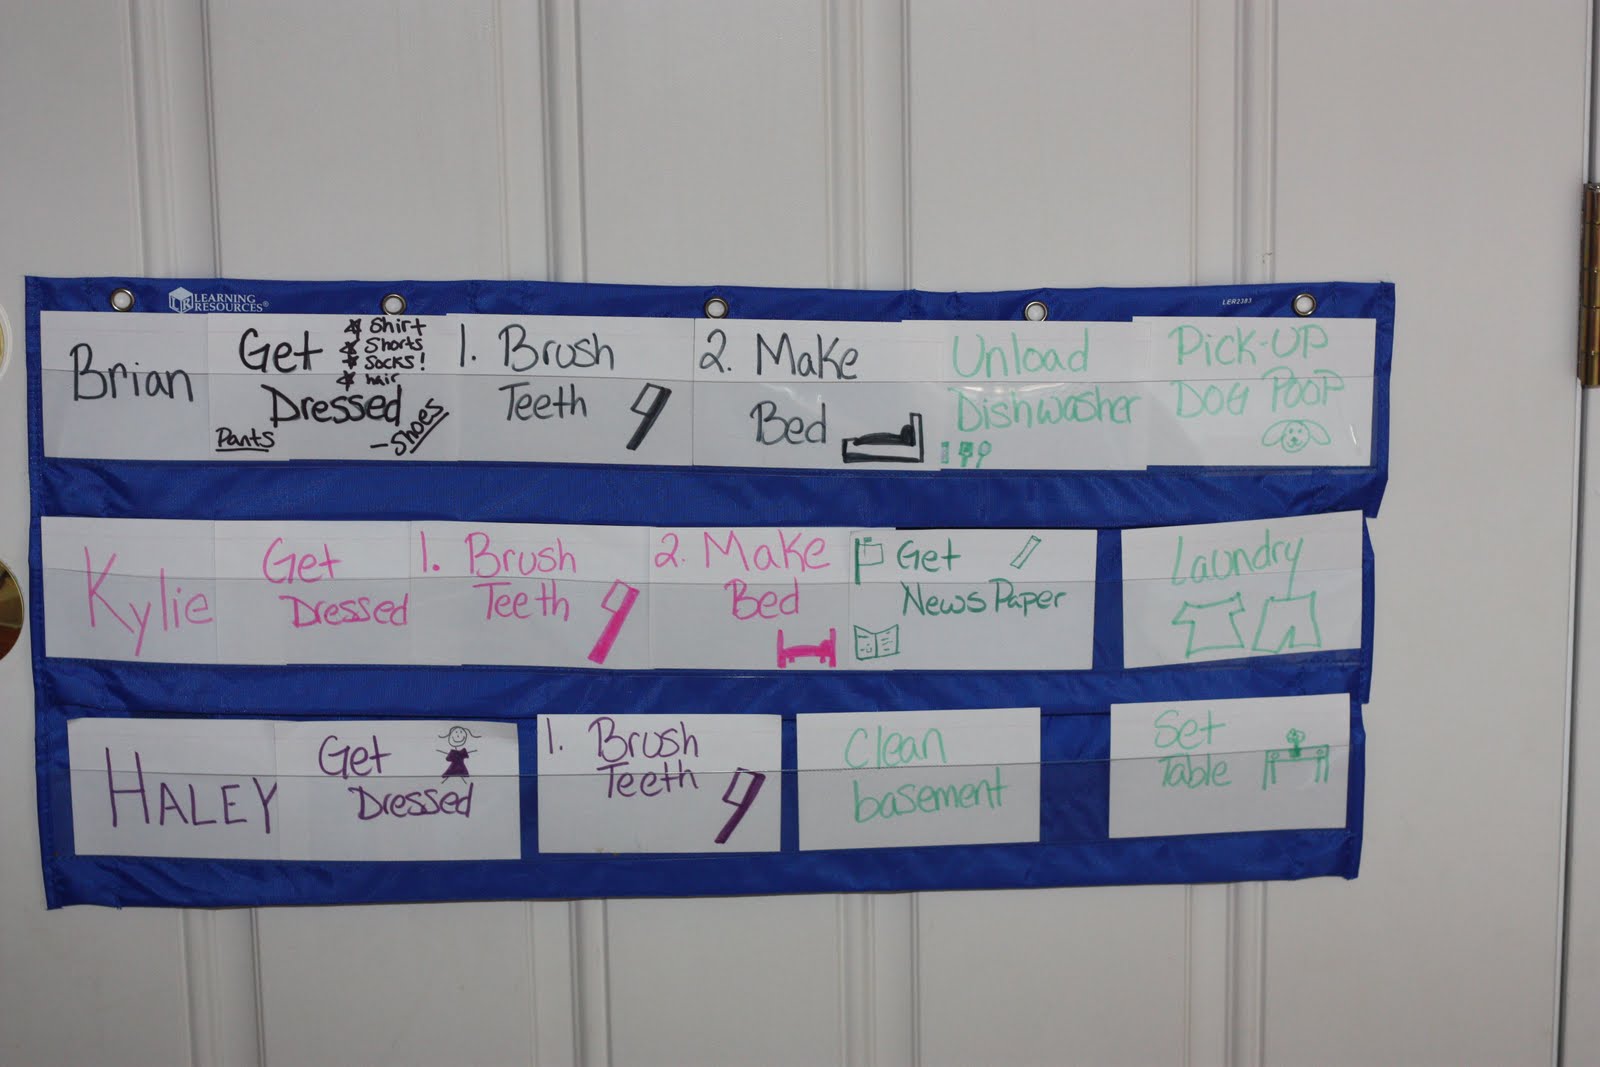 LEARNING
RESOURCES®
LER2383
Brian
Get
Dressed
☆ Shirt
☆ Shorts
☆ Socks!
☆ hair
Pants
-Shoes
1. Brush
Teeth
2. Make
Bed
Unload
Dishwasher
Pick-UP
DOG POOP
Kylie
Get
Dressed
1. Brush
Teeth
2. Make
Bed
Get
NewsPaper
Laundry
HALEY
Get
Dressed
1. Brush
Teeth
Clean
basement
Set
Table